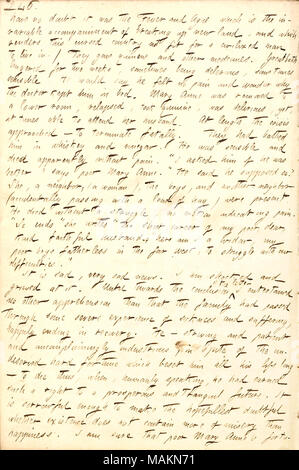 have no doubt it was the fever and ague which is the in-
variable accompaniment of breaking up new land, and which
renders this cursed country not fit for a civilized man
to live in! They gave quinine and other medicines.
lingered for two weeks, sometimes being delirious, sometimes
sensible. He would say he felt no pain and wonder why
the doctor kept him in bed. Mary Anne was removed to
a lower room, relapsed, but quinine was relieved yet
at times able to attend her husband. At length the crisis
approached — to terminate fatally. They had bathed
him in whiskey and vinegar. He was sensible and
died apparently without pain. "I asked him if he was
better" says poor Mary Anne. "He said he supposed so."
She, a neighbor, (a woman), the boys, and another neighbor
(accidentally passing with a load of hay) were present
He died without a struggle or motion indicating pain.
So ends, six the short career of my poor dear
and faithful husband; here am I a widow, my
poor boys fatherless in the far west, to struggle with our
difficulties."
It is sad, very sad news. I am shocked and
grieved at it. Until towards the conclusion entertained
no other apprehension than that the family had passed
through some severe experience of sickness and suffering,
happily ending in recovery. He — strong and patient
and uncomplainingly industrious in spite of the un-
deserved hard fortune which beset him all his life long
— to die thus when, humanly speaking he had earned
such a right to a prosperous and tranquil future. It
is sorrowful enough to make the hopefullest doubtful
whether existence does not contain more of misery than
happiness. I am sure that poor Mary Anne's forti-
alamy
Image ID: MAKN71
www.alamy.com